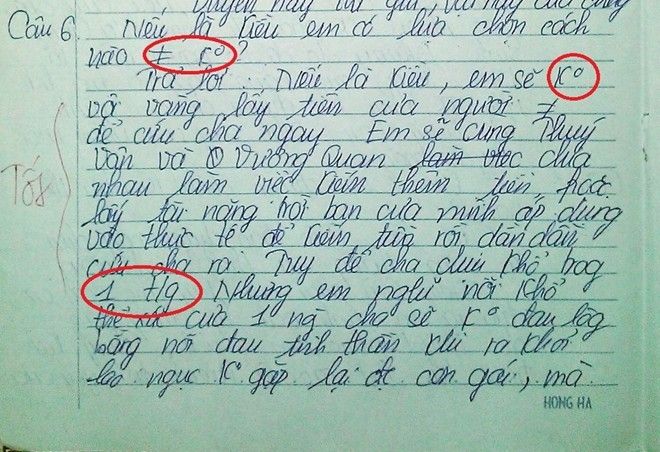 Câu 6. Nếu là Kiều em có lựa chọn cách
nào ≠ k° ?
Trả lời : Nếu là Kiều, em sẽ k°
vội vàng lấy tiền của người ≠
để cứu cha ngay. Em sẽ cùng Thúy
Tốt
Vân và Vương Quan làm việc chia
nhau làm việc kiếm thêm tiền, hoặc
lấy tài năng trời ban của mình áp dụng
vào thực tế để kiếm tiền rồi dần dần
cứu cha ra. Tuy để cha chịu khổ trog
1 t/g Nhưng em nghĩ nỗi khổ
thể xác của 1 ng cha sẽ k° đau lòg
bằng nỗi đau tinh thần khi ra khỏi
lao ngục k° gặp lại đc con gái, mà
HONG HA